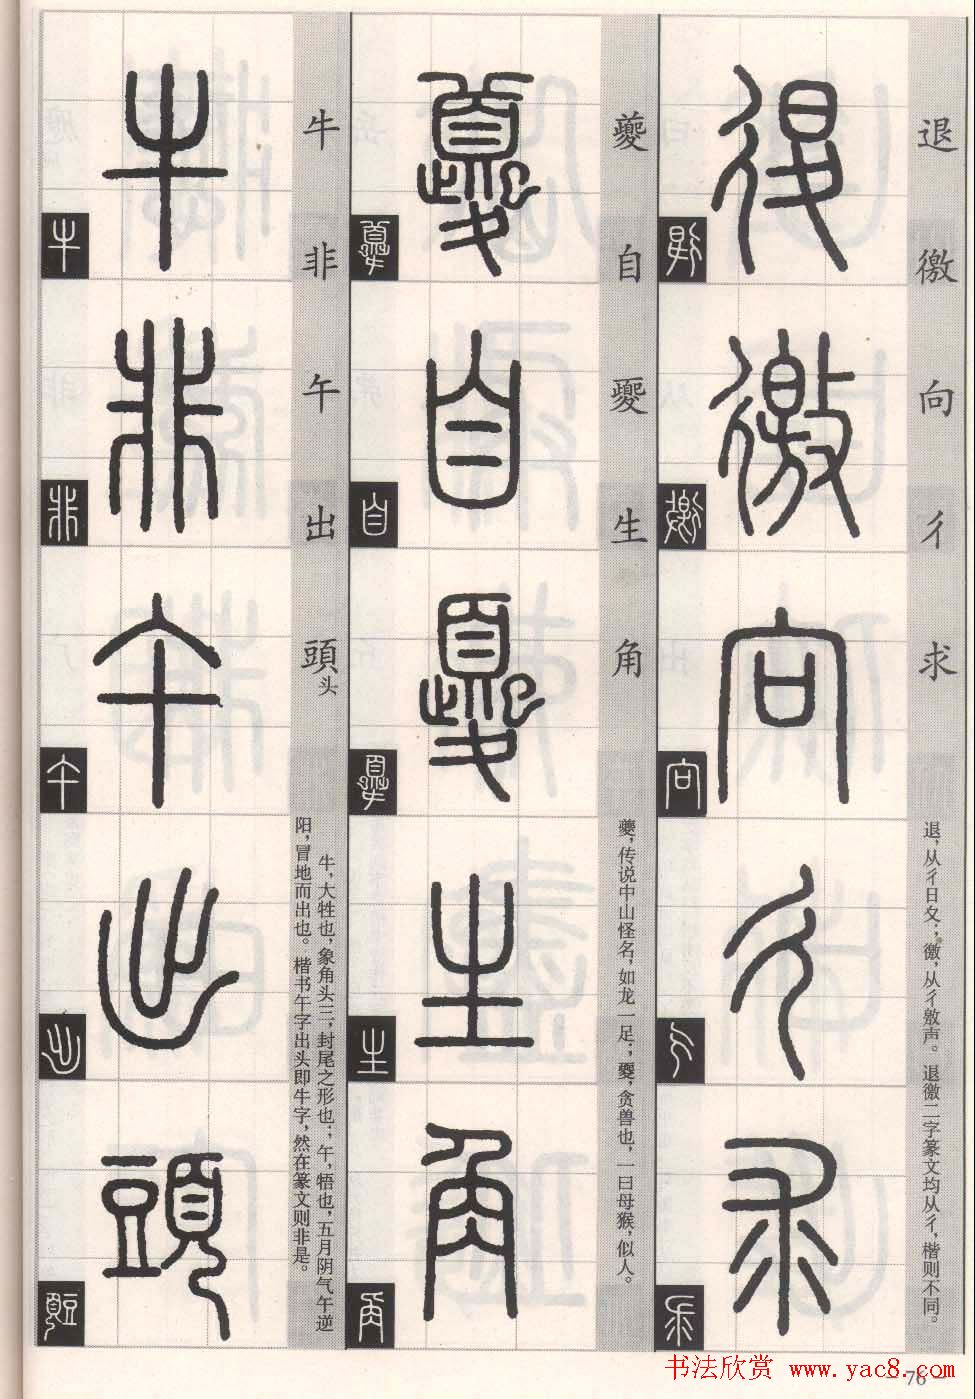 退徼向彳求
退，从彳日夊；徼，从彳敫声。退徼二字篆文均从彳，楷则不同。
夔自夒生角
夔，传说中山怪名，如龙一足；夒，贪兽也，一曰母猴，似人。
牛非午出頭头
牛，大牲也，象角头三，封尾之形也；午，悟也，五月阴气午逆
阳，冒地而出也。楷书午字出头即牛字，然在篆文则非是。
书法欣赏 www.yac8.com
76